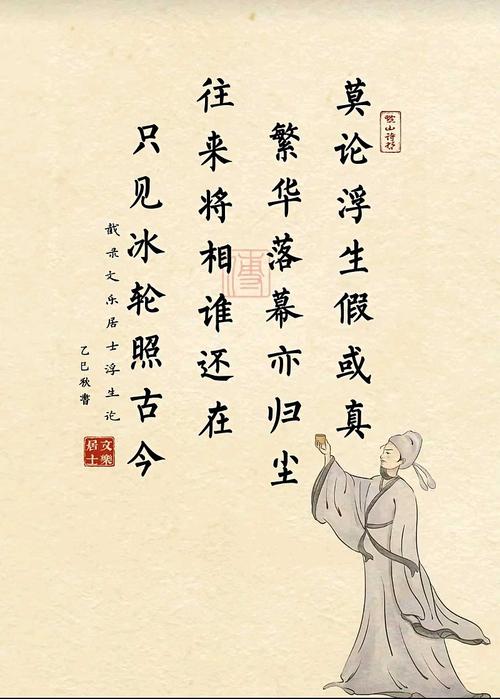 莫论浮生假或真
繁华落幕亦归尘
往来将相谁还在
只见冰轮照古今
截录文乐居士浮生论
乙巳秋书
文乐居士
傅